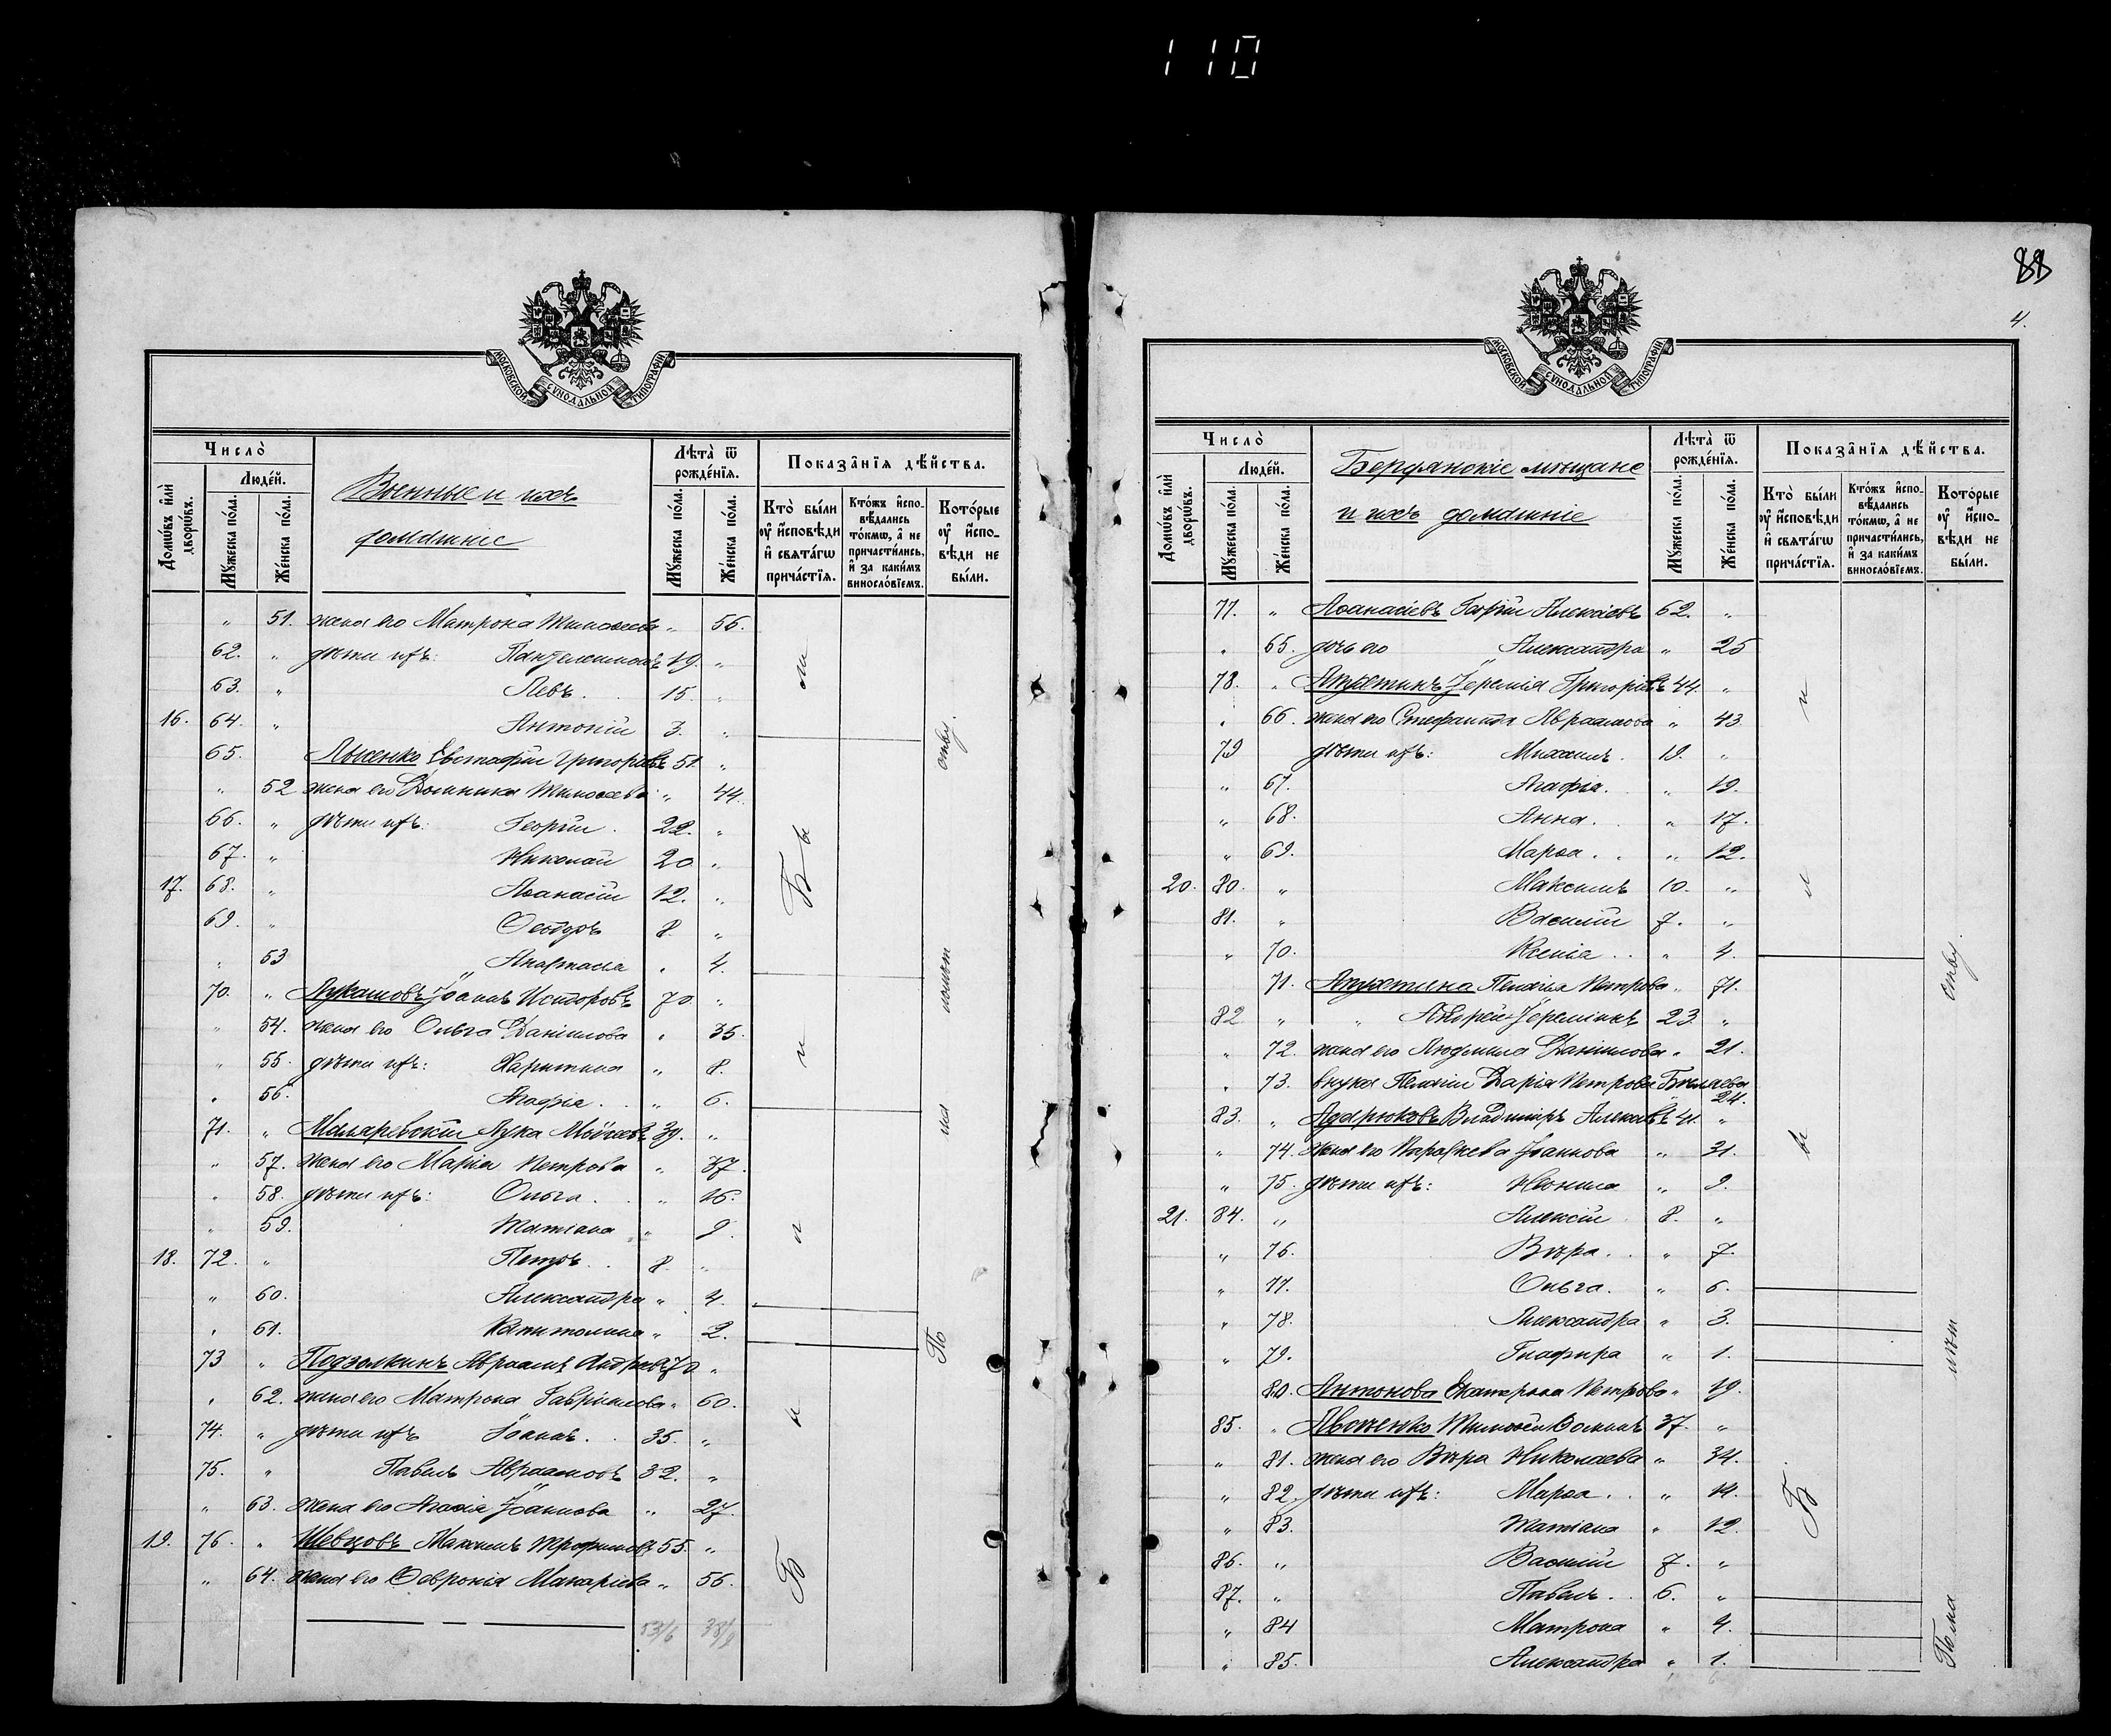 110
88
4.
МОСКОВСКОЙ СѴНОДАЛЬНОЙ ТИПОГРАФІИ
Число̀
Людéй.
Домѡ́въ и҆лѝ дворѡ́въ.
Мꙋ́жеска по́ла.
Же́нска по́ла.
Военные и ихъ
домашніе
Лѣта̀ ѿ рожде́нїѧ.
Мꙋ́жеска по́ла.
Же́нска по́ла.
Показа̂нїѧ дѣ́йства.
Кто̀ бы́ли ᲂу҆ и҆́сповѣди и҆ свѧта́гѡ прича́стїѧ.
Кто́жъ и҆спо-вѣ́дались то́кмѡ, а҆ не причасти́лись, и҆ за каки́мъ винослѡ́вїемъ.
Кото́рые ᲂу҆ и҆́спо-вѣди не бы́ли.
" 51. жена его Матрона Тимофеева " 56.
62. " дѣти ихъ: Пантелеимонъ 19. "
63. " Левъ. 15. "
16. 64. " Антоній 3. "
65. Лысенко Евстафій Григорьевъ 51. "
" 52 жена его Домника Тимофеева " 44.
66. " дѣти ихъ: Георгій. 22. "
67. " Николай 20 "
17. 68. " Афанасій 12. "
69. " Ѳеодоръ 8. "
" 53 Анастасія " 4.
70. " Лукашовъ Іоаннъ Исидоровъ 70. "
" 54. жена его Ольга Даніилова " 35.
" 55. дѣти ихъ: Харитина " 8.
" 56. Агафія. " 6.
71. " Маляревскій Лука Моѵсеевъ 39. "
" 57. жена его Марія Петрова " 37.
" 58. дѣти ихъ: Ольга. " 16.
" 59. Татіана " 9.
18. 72. " Петръ. 8. "
" 60. Александра " 4.
" 61. Капитолина " 2.
73 " Подзолкинъ Авраамъ Андреевъ 70 "
" 62. жена его Матрона Гавріилова " 60.
74. " дѣти ихъ Іоаннъ. 35. "
75. " Павелъ Авраамовъ 32. "
" 63. жена его Агафія Іоаннова " 27.
19. 76. " Шевцовъ Максимъ Трофимовъ 55. "
" 64. жена его Февронія Макаріева " 56.
53/6 38/9
Были
По малолѣтству.
МОСКОВСКОЙ СѴНОДАЛЬНОЙ ТИПОГРАФІИ
Число̀
Людéй.
Домѡ́въ и҆лѝ дворѡ́въ.
Мꙋ́жеска по́ла.
Же́нска по́ла.
Бердянскіе мѣщане
и ихъ домашніе
Лѣта̀ ѿ рожде́нїѧ.
Мꙋ́жеска по́ла.
Же́нска по́ла.
Показа̂нїѧ дѣ́йства.
Кто̀ бы́ли ᲂу҆ и҆́сповѣди и҆ свѧта́гѡ прича́стїѧ.
Кто́жъ и҆спо-вѣ́дались то́кмѡ, а҆ не причасти́лись, и҆ за каки́мъ винослѡ́вїемъ.
Кото́рые ᲂу҆ и҆́спо-вѣди не бы́ли.
77. " Афанасіевъ Георгій Алексіевъ 62. "
" 65. дочь его Александра " 25
78. " Апухтинъ Іеремія Григоріевъ 44. "
" 66. жена его Стефанида Авраамова " 43
79 дѣти ихъ: Михаилъ. 19. "
" 67. Агафія. " 19.
" 68. Анна. " 17.
" 69. Марфа. " 12.
20. 80. " Максимъ 10. "
81. " Василій 7. "
" 70. Ксенія. " 4.
71. Апухтина Пелагія Петрова " 71.
82 " " Андрей Іереміинъ 23. "
" 72. жена его Людмила Даніилова " 21.
" 73. внука Пелагіи Дарія Петрова Бѣляева 24.
83. " Адарюковъ Владиміръ Алексіевъ 41. "
" 74. жена его Параскева Іоаннова " 31.
" 75. дѣти ихъ: Неонила " 9.
21. 84. " Алексій 8. "
" 76. Вѣра. " 7.
" 77. Ольга. " 6.
" 78. Александра " 3.
" 79. Глафира " 1.
80. Антонова Екатерина Петрова " 19.
85. " Тимофей 37. "
" 81. жена его Вѣра Николаева " 34.
" 82. дѣти ихъ: Марфа. " 14.
" 83. Татіана " 12.
86. " Василій 7. "
87. " Павелъ. 6. "
" 84 Матрона " 4.
" 85. Александра " 1.
Были
По малолѣтству.